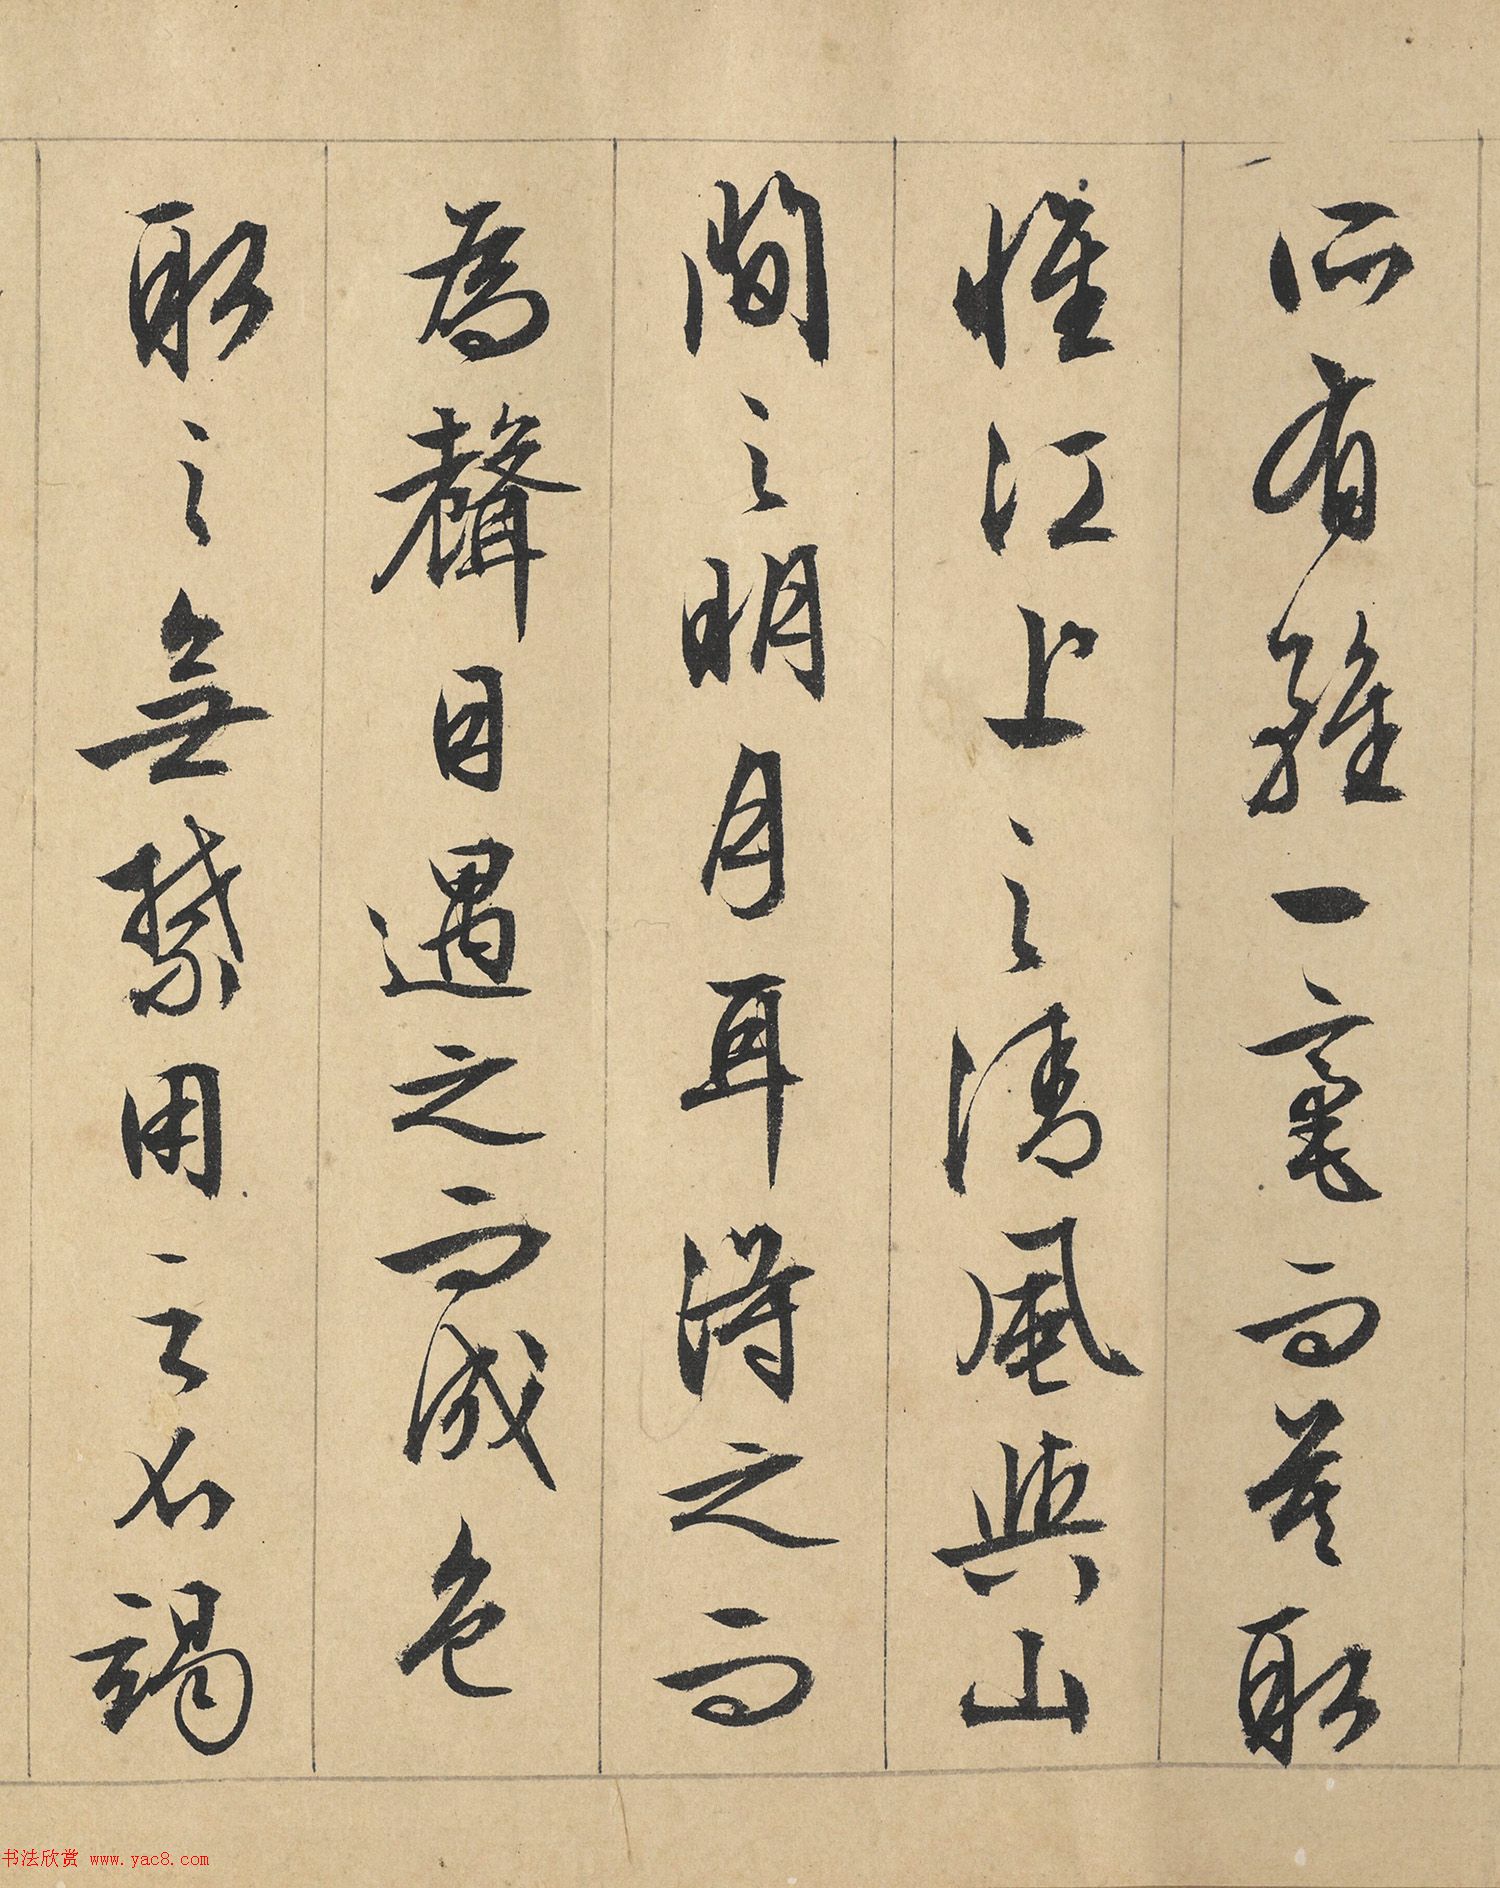 所有雖一毫而莫取
惟江上之清風與山
間之明月耳得之而
為聲目遇之而成色
取之無禁用之不竭
书法欣赏 www.yac8.com